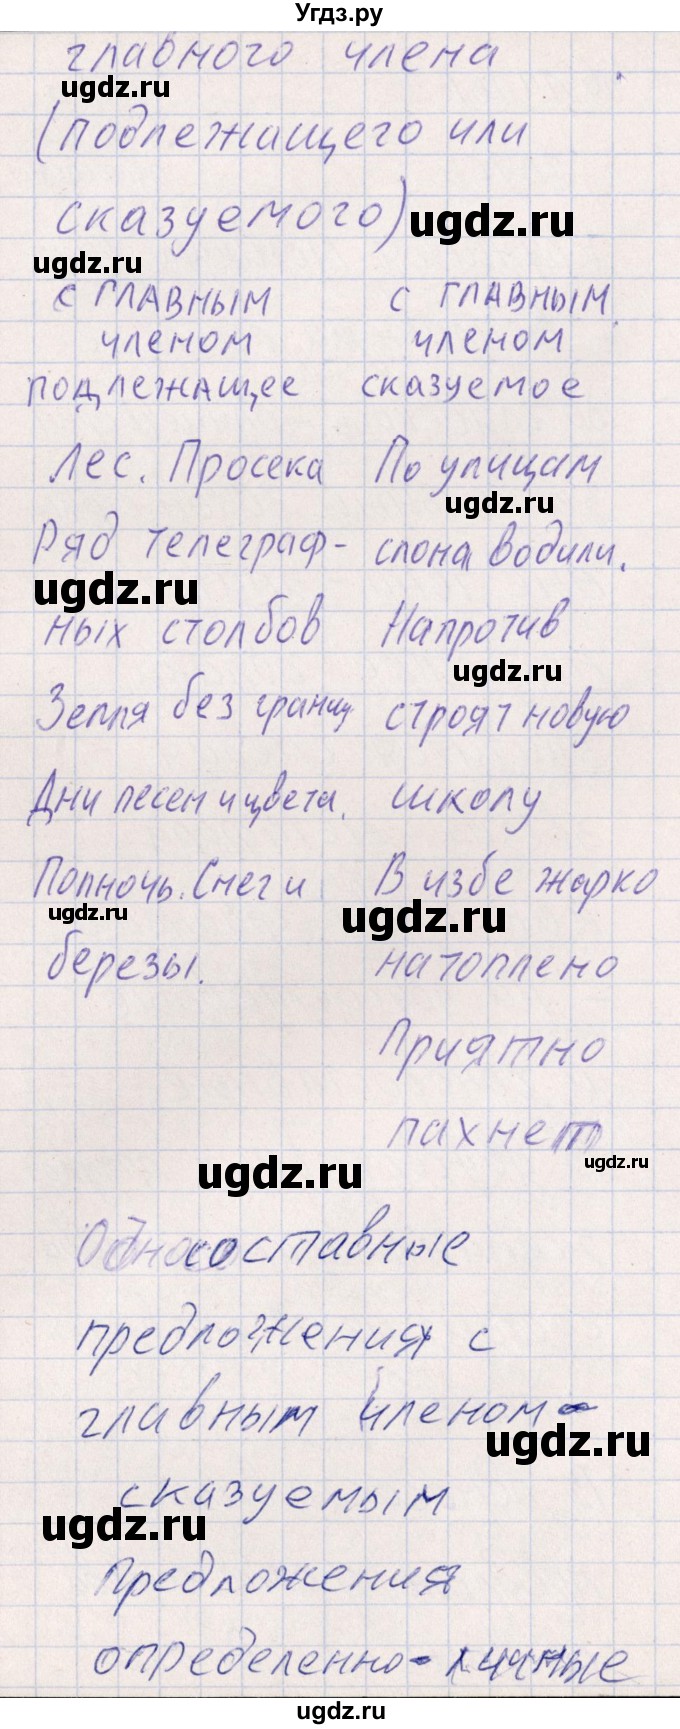 Угдз.ру
главного члена
ugdz.ru
(подлежащего или
сказуемого)
ugdz.ru
ugdz.ru
с главным с главным
членом членом
подлежащее сказуемое
Лес. Просека По улицам
ugdz.ru
Ряд телеграф- слона водили.
ugdz.ru
ных столбов Напротив
ugdz.ru
Земля без границ строят новую
Дни песен и цвета. школу
Полночь. Снег и В избе жарко
ugdz.ru ugdz.ru
березы. натоплено
Приятно
пахнет
ugdz.ru ugdz.ru
Односоставные
предложения с
главным членом-
ugdz.ru
сказуемым
ugdz.ru
Предложения
определенно-личные
ugdz.ru